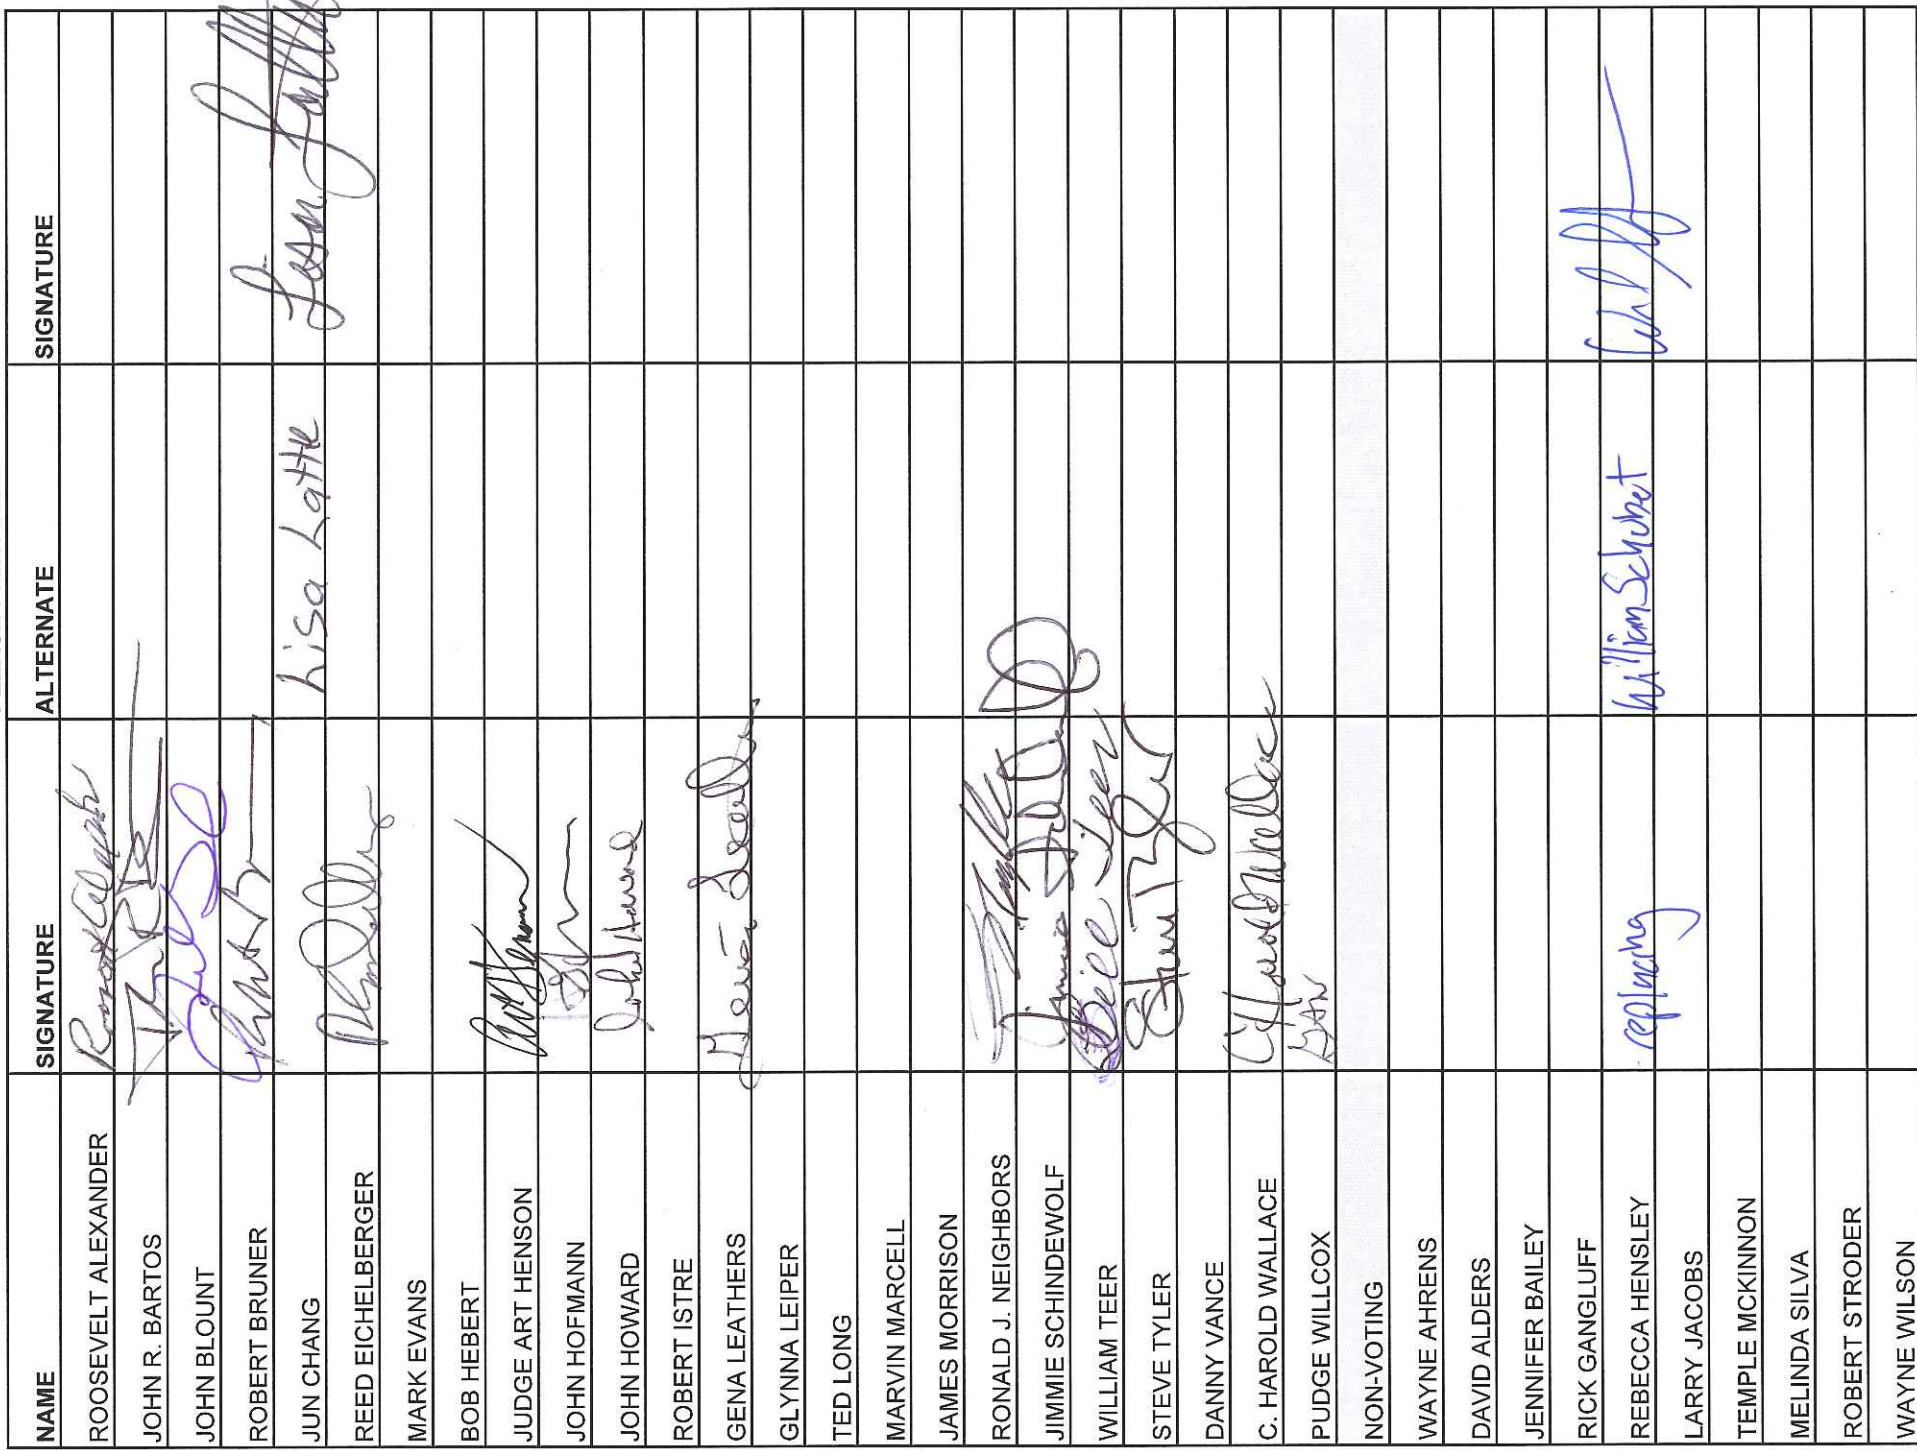 NAME SIGNATURE ALTERNATE SIGNATURE
ROOSEVELT ALEXANDER
JOHN R. BARTOS
JOHN BLOUNT
ROBERT BRUNER
JUN CHANG Lisa Lattu
REED EICHELBERGER
MARK EVANS
BOB HEBERT
JUDGE ART HENSON Art Henson
JOHN HOFMANN
JOHN HOWARD John Howard
ROBERT ISTRE
GENA LEATHERS Gena Leathers
GLYNNA LEIPER
TED LONG
MARVIN MARCELL
JAMES MORRISON
RONALD J. NEIGHBORS
JIMMIE SCHINDEWOLF
WILLIAM TEER Bill Teer
STEVE TYLER Steve Tyler
DANNY VANCE
C. HAROLD WALLACE C Harold Wallace
PUDGE WILLCOX
NON-VOTING
WAYNE AHRENS
DAVID ALDERS
JENNIFER BAILEY
RICK GANGLUFF
REBECCA HENSLEY replacing William Schubert
LARRY JACOBS
TEMPLE MCKINNON
MELINDA SILVA
ROBERT STRODER
WAYNE WILSON